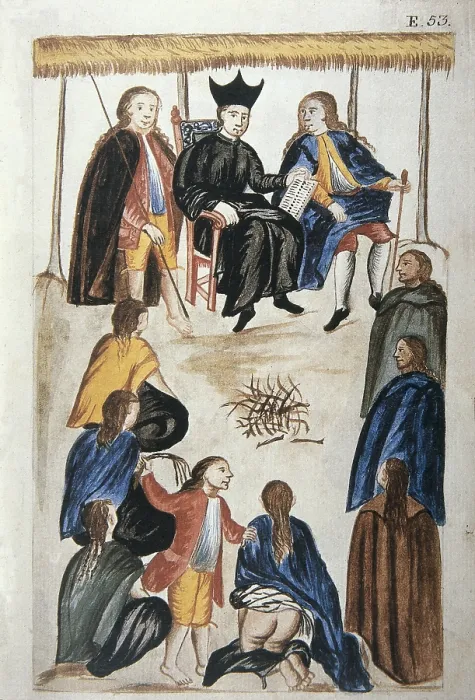 E. 53.